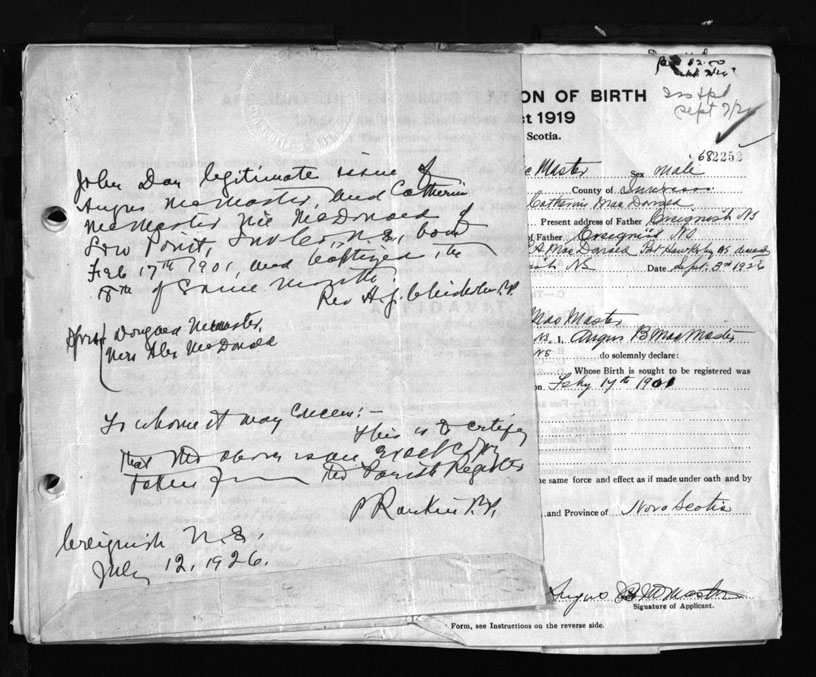 John Dan legitimate issue of
Angus McMaster, and Catherin
McMaster Neé McDonald of
Low Point, Inv Co., N.S., born
Feb 17th 1901, and baptized the
of same month
Rev A.J. Chisholm P.P.
Dougald McMaster,
Mrs Alex McDonald
To whom it may Concern:-
This is to certify
that the above is an exact copy
taken from the Parish Register
P Rankin P.P.
Creignish N.S.
July 12, 1926.
ON OF BIRTH
ct 1919
Scotia.
Sept 7/26
682252
cMaster Sex male
County of Inverness
Catherine MacDonald
Present address of Father Creignish NS
of Father Creignish NS
A MacDonald Port Hawksbury NS
NS Date Sept. 3rd 1926
MacMaster
NS. I, Angus B MacMaster
NS do solemnly declare:
Whose Birth is sought to be registered was
on Feby 17th 1901
he same force and effect as if made under oath and by
and Province of Nova Scotia
Angus B McMaster
Signature of Applicant.
Form, see Instructions on the reverse side.